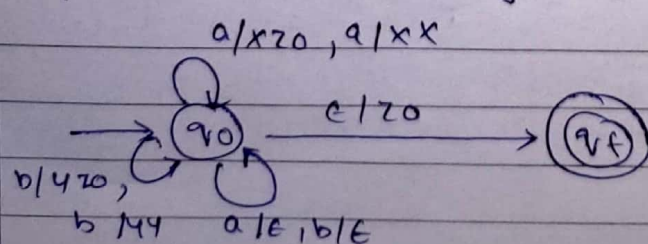 a/xz0, a/xx
q0
ε/z0
qf
b/yz0,
b/yy
a/ε, b/ε